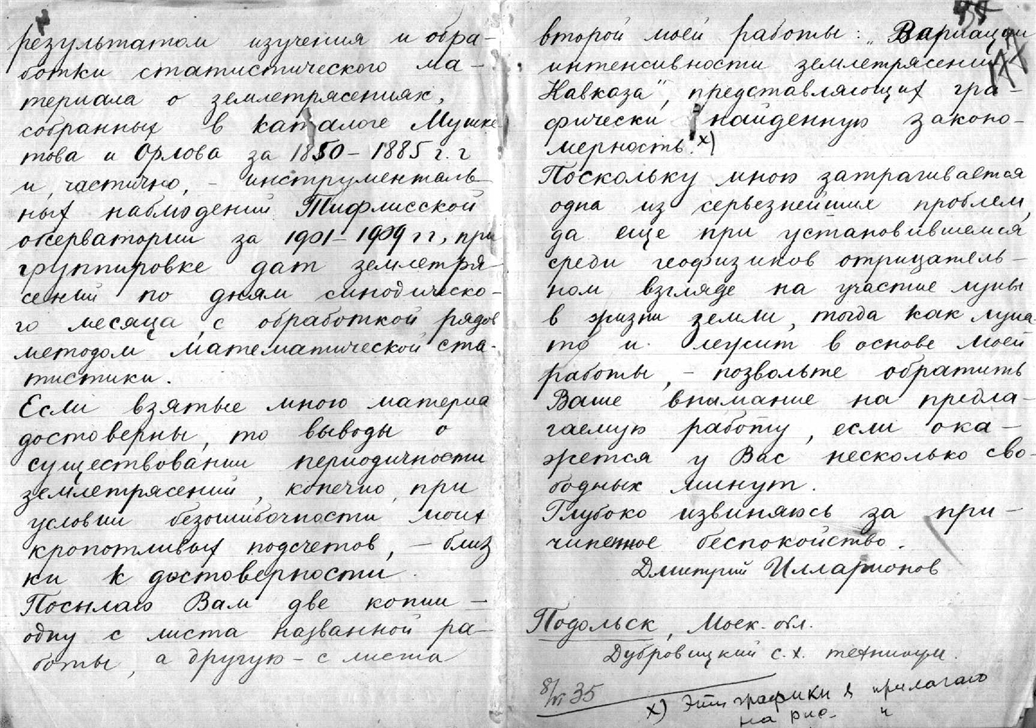 результатом изучения и обра-
ботки статистического ма-
териала о землетрясениях,
собранных в каталоге Мушке
това и Орлова за 1850-1885 г.г
и, частично, - инструменталь
ных наблюдений Тифлисской
обсерватории за 1901-1909 г г, при
группировке дат землетря-
сений по дням синодическо-
го месяца с обработкой рядов
методом математической ста-
тистики.
Если взятые мною материа
достоверны, то выводы о
существовании периодичности
землетрясений, конечно, при
условии безошибочности моих
кропотливых подсчетов, - близ
ки к достоверности.
Посылаю Вам две копии -
одну с листа названной ра-
боты, а другую - с листа
второй моей работы: "Вариации
интенсивности землетрясений
Кавказа", представляющих гра-
фически найденную законо-
мерность. х)
Поскольку мною затрагивается
одна из серьезнейших проблем,
да еще при установившемся
среди геофизиков отрицатель-
ном взгляде на участие луны
в жизни земли, тогда как луна
то и лежит в основе моей
работы, - позвольте обратить
Ваше внимание на предла-
гаемую работу, если ока-
жется у Вас несколько сво-
бодных минут.
Глубоко извиняюсь за при-
чиненное беспокойство.
Дмитрий Илларионов
Подольск, Моск. обл.
Дубровицкий с.х. техникум.
35
х) Эти графики я прилагаю
на рис.